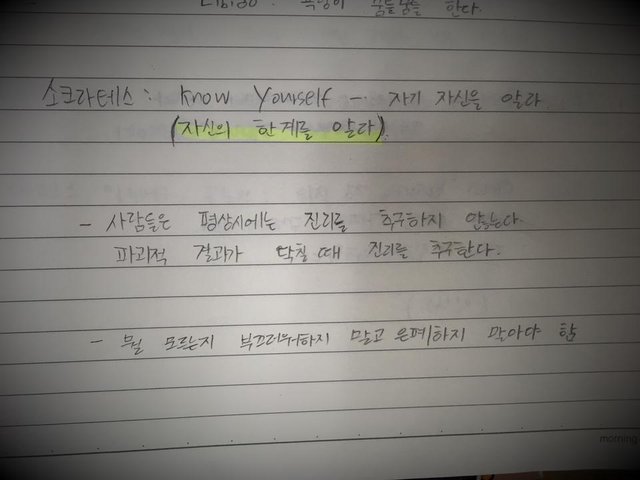 Libido : 욕망이 꿈틀댐을 한다.
소크라테스 : Know Yourself - 자기 자신을 알라
(자신의 한계를 알라)
- 사람들은 평상시에는 진리를 추구하지 않는다
파괴적 결과가 닥칠 때 진리를 추구한다.
- 뭘 모르는지 부끄러워하지 말고 은폐하지 말아야 함
morning